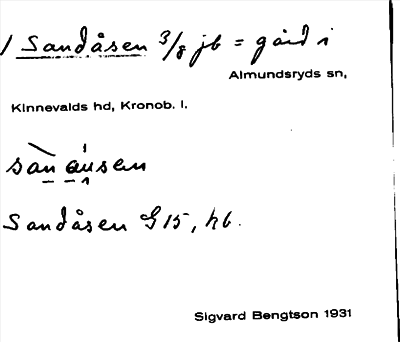 / Sandåsen 3/8 jb = gård i
Almundsryds sn,
Kinnevalds hd, Kronob. l.
san ausen
Sandåsen G 15, hb.
Sigvard Bengtson 1931